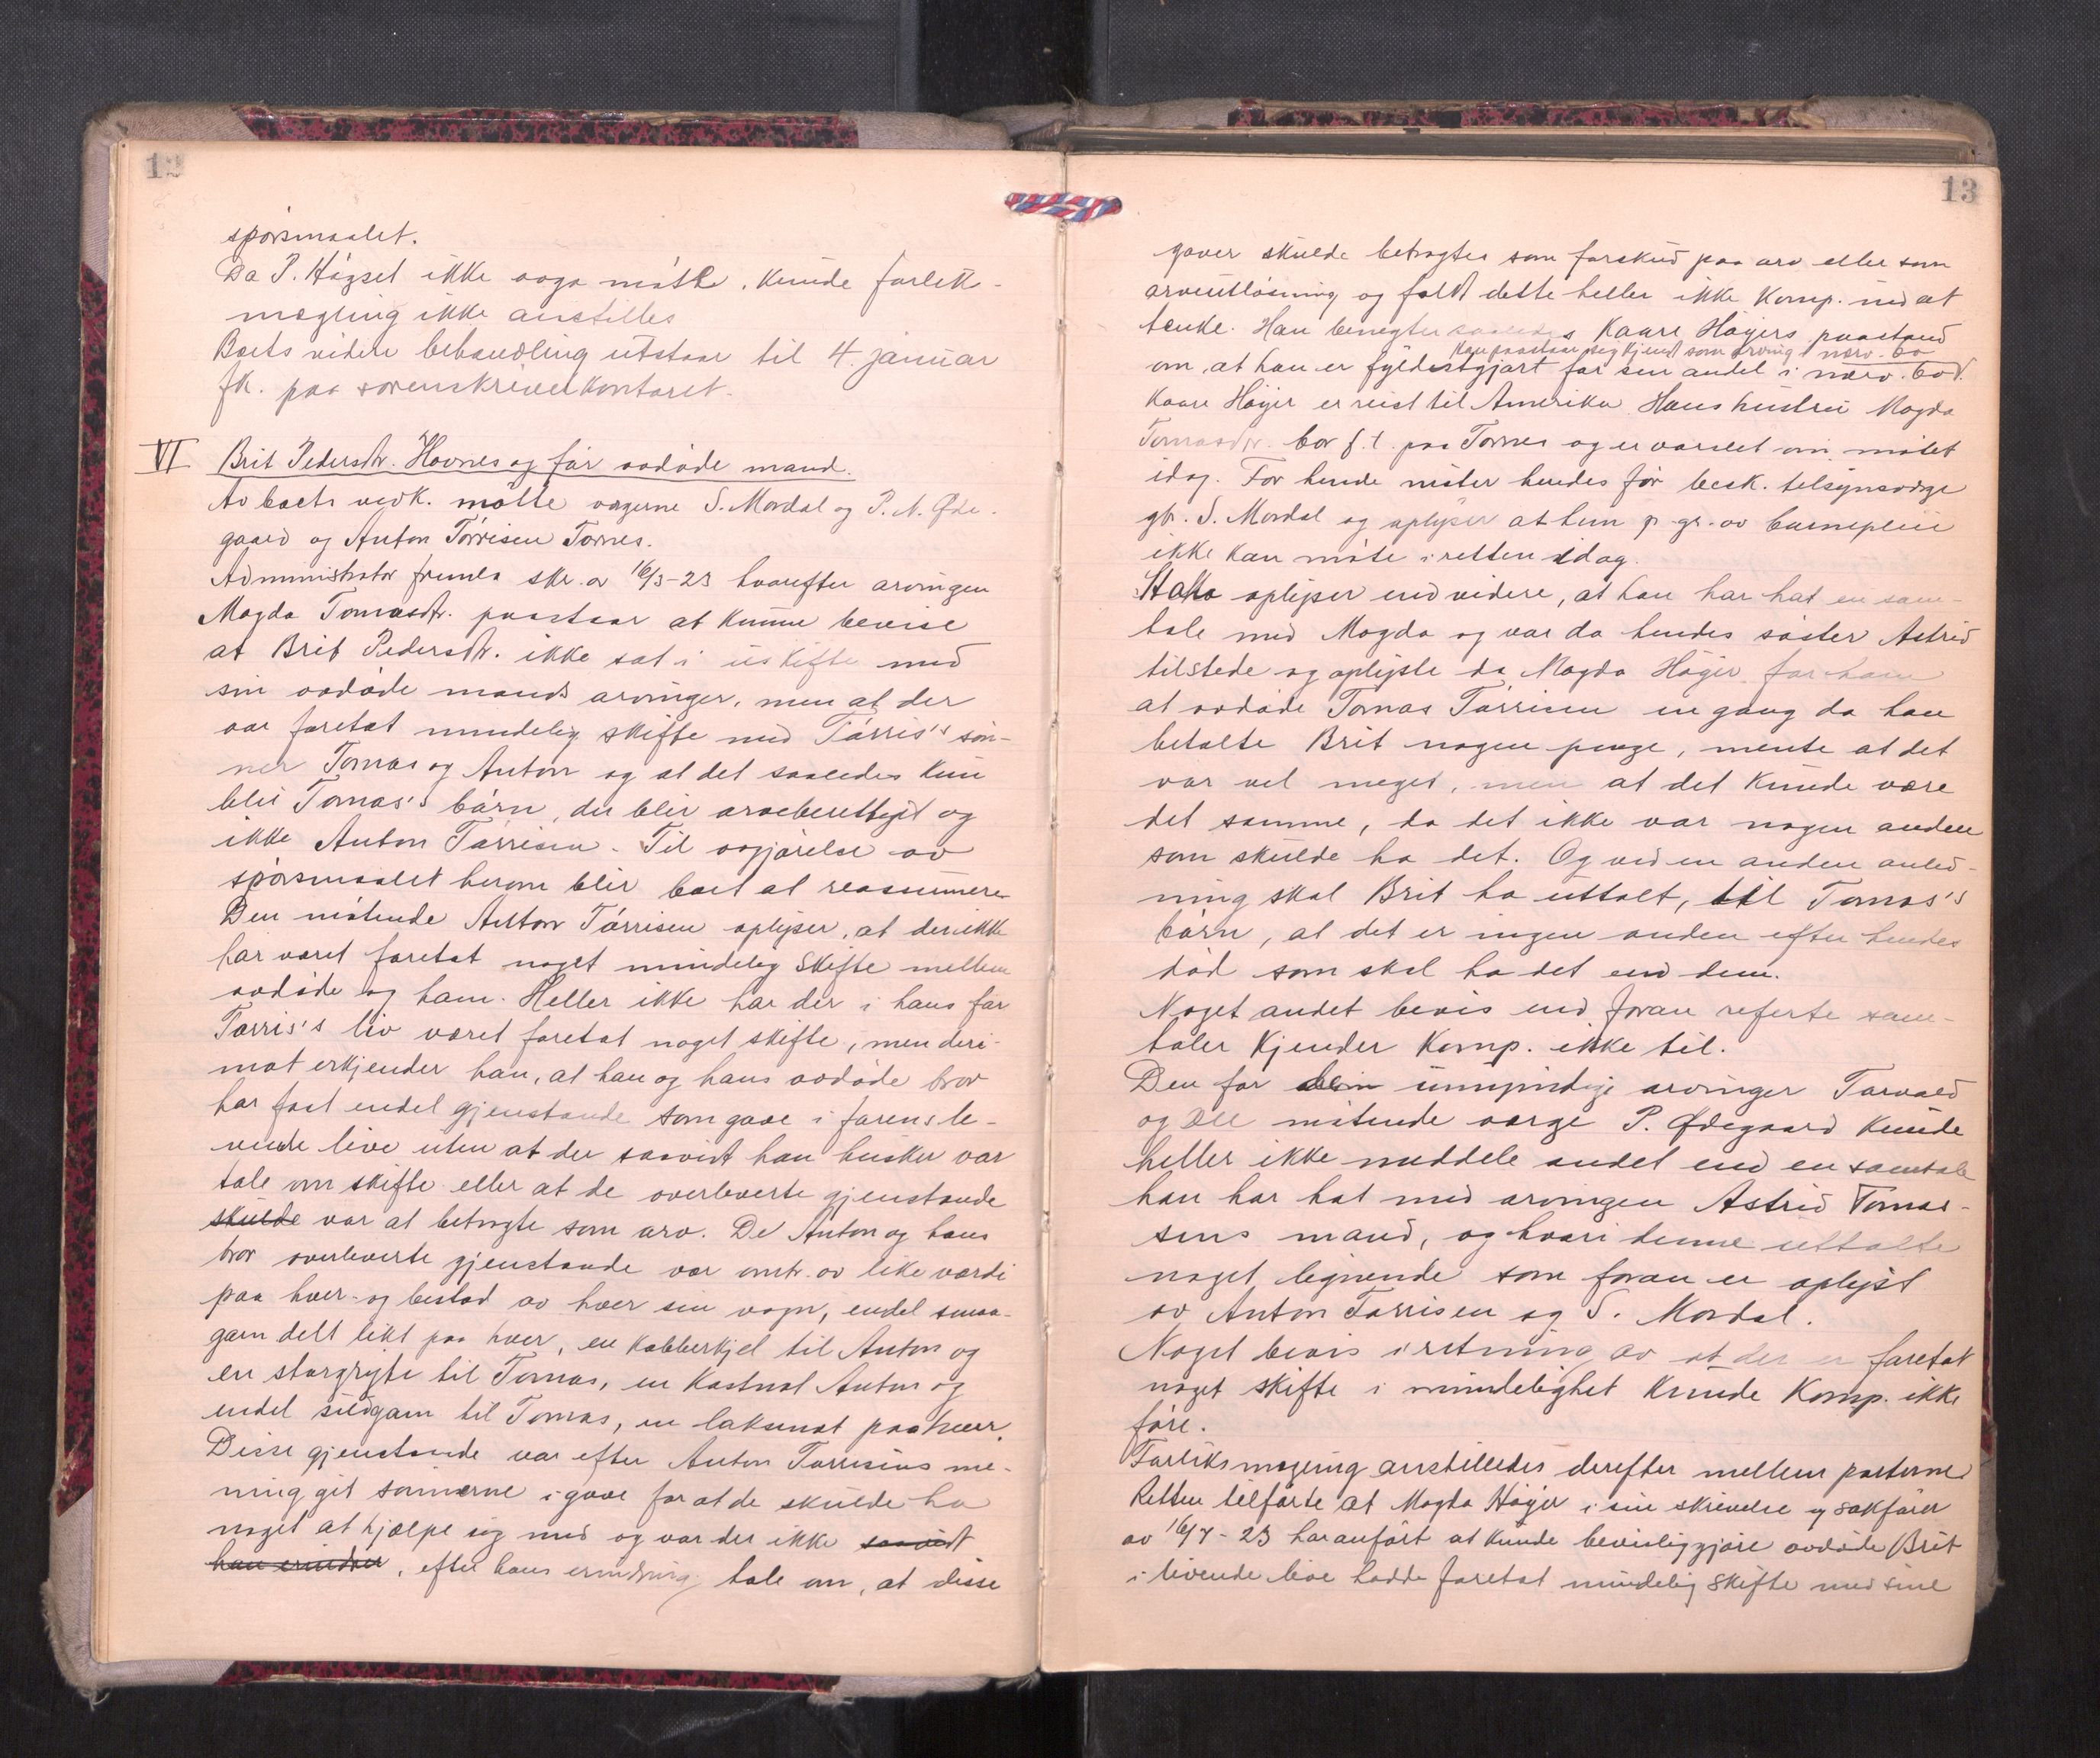 12
spørsmaalet.
Da P. Høgset ikke ogsa møtte, kunde forlik-
mægling ikke anstilles
Boets videre behandling utstaar til 4. januar
fk. paa sorenskriverkontoret.
VI Brit Pedersdtr. Hovnes og før avdøde mand.
Av boets vedk. møtte vergerne S. Mordal og P. N. Øde-
gaard og Anton Tørrisen Tornes.
Administrator fremla skr. av 16/3-23 hvorefter arvingen
Magda Tomasdtr. paastaar at kunne bevise
at Brit Pedersdtr. ikke sat i uskifte med
sin avdøde mands arvinger, men at der
var foretat mindelig skifte med Tørris's søn-
ner Tomas og Anton og at det saaledes kun
blir Tomas's børn, der blir arveberettiget og
ikke Anton Tørrisen. Til avgjørelse av
spørsmaalet herom blir boet at reassumere
Den møtende Anton Tørrisen oplyser, at der ikke
har været foretat noget mindelig skifte mellem
avdøde og ham. Heller ikke har der i hans far
Tørris's liv været foretat noget skifte, men deri-
mot erkjender han, at han og hans avdøde bror
har faat endel gjenstande som gave i farens le-
vende live uten at der saavidt han husker var
tale om skifte eller at de overleverte gjenstande
skulde var at betragte som arv. De Anton og hans
bror overleverte gjenstande var omtr. av like værdi
paa hver og bestod av hver sin vogn, endel smaa-
garn delt likt paa hver, en kobberkjel til Anton og
en storgryte til Tomas, en kastnot Anton og
endel sildgarn til Tomas, en laksenot paa hver.
Disse gjenstande var efter Anton Tørrisens me-
ning git sønnerne i gave for at de skulde ha
noget at hjælpe sig med og var der ikke saavidt
han erindrer, efter hans erindring tale om, at disse
13
gaver skulde betragtes som forskud paa arv eller som
arveutløsning og faldt dette heller ikke Komp. ind at
tænke. Han benegter saaledes Kaare Høgers paastand
Han paastaar sig kjend som arving i nærv. bo
om at han er fyldestgjort for sin andel i nærv. bo.
Kaare Høger er reist til Amerika. Hans hustru Magda
Tomasdtr. bor f. t. paa Tornes og er varslet om møtet
idag. For hende møter hendes før besk. tilsynsverge
gb. S. Mordal og oplyser at hun p. gr. av barnepleie
ikke kan møte i retten idag.
oplyser end videre, at han har hat en sam-
tale med Magda og var da hendes søster Astrid
tilstede og oplyste da Magda Høger for ham
at avdøde Tomas Tørrisen en gang da han
betalte Brit nogen penge, mente at det
var vel meget, men at det kunde være
det samme, da det ikke var nogen anden
som skulde ha det. Og ved en anden anled-
ning skal Brit ha uttalt, til Tomas's
børn, at det er ingen anden efter hendes
død som skal ha det end dem.
Noget andet bevis end foran referte sam-
taler kjender Komp. ikke til.
Den for umyndige arvinger Torvald
og møtende verge P. Ødegaard kunde
heller ikke meddele andet end en samtale
han har hat med arvingen Astrid Tomas-
sens mand, og hvori denne uttalte
noget lignende som foran er oplyst
av Anton Tørrisen og S. Mordal.
Noget bevis i retning av at der er foretat
noget skifte i mindelighet kunde Komp. ikke
føre.
Forliksmægling anstilledes derefter mellem parterne
Retten tilførte at Magda Høger i sin skrivelse sakfører
av 16/7-23 har anført at kunde bevisliggjøre avdøde Brit
i levende live hadde foretat mindelig skifte med sine